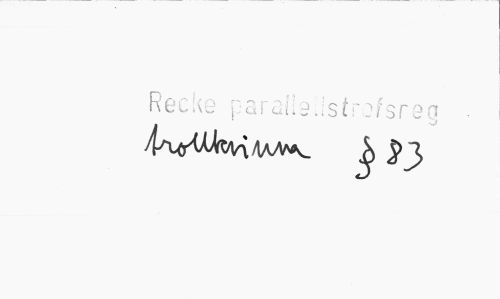 Recke parallellstrofsreg
trollkvinna § 83